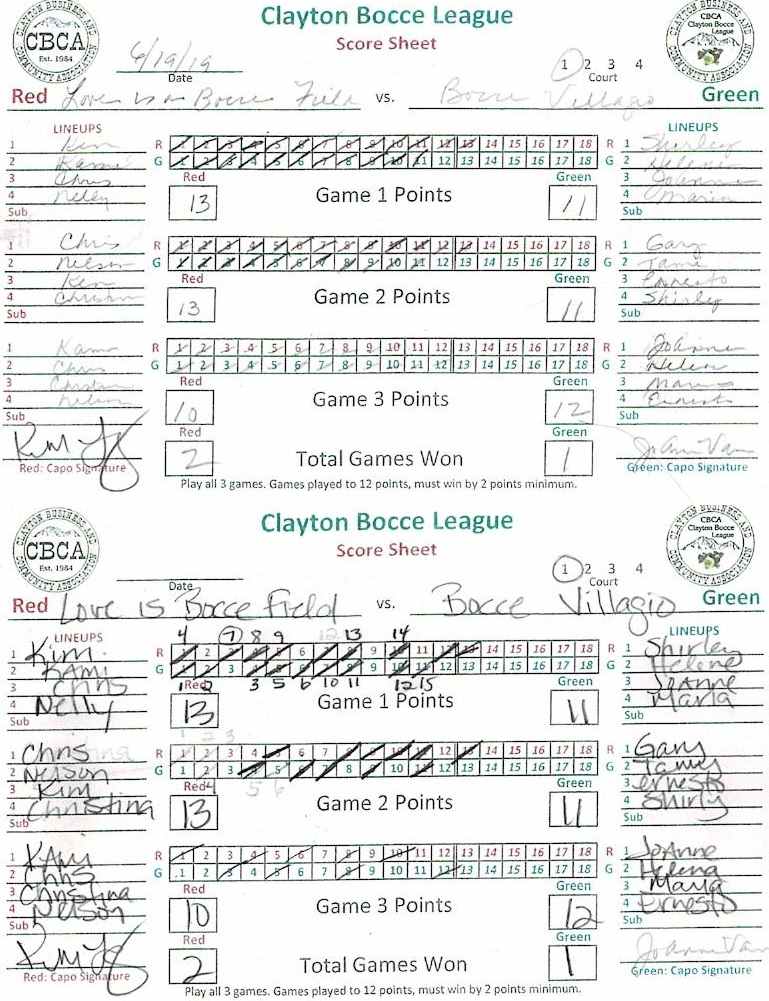 Clayton Bocce League
Score Sheet
CBCA
Est. 1984
CLAYTON BUSINESS AND COMMUNITY ASSOCIATION
CBCA
Clayton Bocce
League
6/19/19
Date
1 2 3 4
Court
Red Love is a Bocce Field vs. Bocce Villagio Green
LINEUPS LINEUPS
R 1 2 3 4 5 6 7 8 9 10 11 12 13 14 15 16 17 18 R
G 1 2 3 4 5 6 7 8 9 10 11 12 13 14 15 16 17 18 G
1 Kim 1 Shirley
2 Kami 2 Helene
3 Chris 3 JoAnne
4 Nelly 4 Maria
Sub Sub
Red Game 1 Points Green
13 11
R 1 2 3 4 5 6 7 8 9 10 11 12 13 14 15 16 17 18 R
G 1 2 3 4 5 6 7 8 9 10 11 12 13 14 15 16 17 18 G
1 Chris 1 Gary
2 Nelson 2 Tami
3 Kim 3 Ernesto
4 Christina 4 Shirley
Sub Sub
Red Game 2 Points Green
13 11
R 1 2 3 4 5 6 7 8 9 10 11 12 13 14 15 16 17 18 R
G 1 2 3 4 5 6 7 8 9 10 11 12 13 14 15 16 17 18 G
1 Kami 1 JoAnne
2 Chris 2 Helen
3 Christina 3
4 Nelson 4 Ernesto
Sub Sub
Red Game 3 Points Green
10 12
Red Total Games Won Green
2 1
Red: Capo Signature Green: Capo Signature
Play all 3 games. Games played to 12 points, must win by 2 points minimum.
Clayton Bocce League
Score Sheet
CBCA
Est. 1984
CLAYTON BUSINESS AND COMMUNITY ASSOCIATION
CBCA
Clayton Bocce
League
Date
1 2 3 4
Court
Red Love is Bocce Field vs. Bocce Villagio Green
LINEUPS LINEUPS
4 7 8 9 12 13 14
R 1 2 3 4 5 6 7 8 9 10 11 12 13 14 15 16 17 18 R
G 1 2 3 4 5 6 7 8 9 10 11 12 13 14 15 16 17 18 G
1 2 3 5 6 10 11 12 15
1 Kim 1 Shirley
2 Kami 2 Helene
3 Chris 3 JoAnne
4 Nelly 4 Marla
Sub Sub
Red Game 1 Points Green
13 11
1 2 3
R 1 2 3 4 5 6 7 8 9 10 11 12 13 14 15 16 17 18 R
G 1 2 3 4 5 6 7 8 9 10 11 12 13 14 15 16 17 18 G
4 5 6
1 Chris 1 Gary
2 Nelson 2 Tamy
3 Kim 3 ernesto
4 Christina 4 Shirly
Sub Sub
Red Game 2 Points Green
13 11
R 1 2 3 4 5 6 7 8 9 10 11 12 13 14 15 16 17 18 R
G 1 2 3 4 5 6 7 8 9 10 11 12 13 14 15 16 17 18 G
1 KAmi 1 JoAnne
2 Chris 2 Helena
3 Christina 3 Marla
4 Nelson 4 Ernesto
Sub Sub
Red Game 3 Points Green
10 12
Red Total Games Won
2 1
Red: Capo Signature Green: Capo Signature
Play all 3 games. Games played to 12 points, must win by 2 points minimum.